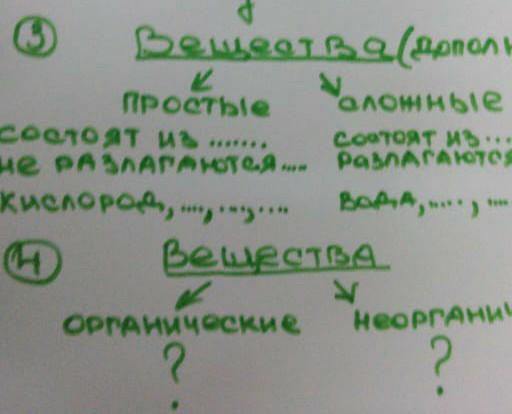 3 Вещества (допол
простые сложные
состоят из ....... состоят из ...
не разлагаются .... разлагаются
кислород, ...., ...., .... вода, ....., ....
4 Вещества
органические неорганич
? ?